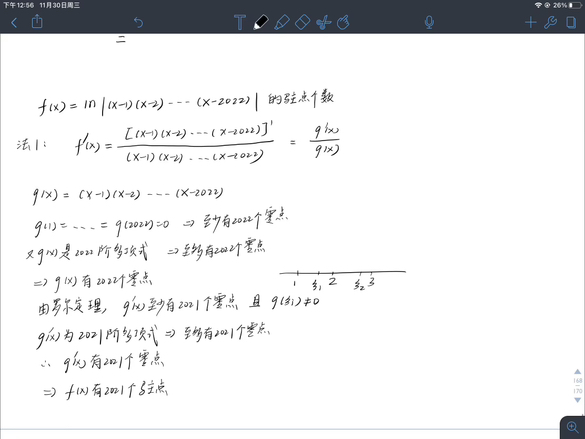 下午12:56 11月30日周三
26%
二
f(x) = ln |(x-1)(x-2) ---- (x-2022)| 的驻点个数
法1: f'(x) = [(x-1)(x-2) ---- (x-2022)]' / (x-1)(x-2) ---- (x-2022) = g'(x) / g(x)
g(x) = (x-1)(x-2) ---- (x-2022)
g(1) = ---- = g(2022) = 0 ⇒ 至少有2022个零点
又g(x)是2022阶多项式 ⇒ 至多有2022个零点
⇒ g(x)有2022个零点
1 ξ₁ 2 ξ₂ 3
由罗尔定理, g'(x)至少有2021个零点 且 g(ξi) ≠ 0
g'(x)为2021阶多项式 ⇒ 至多有2021个零点
∴ g'(x)有2021个零点
⇒ f(x)有2021个驻点
168
170